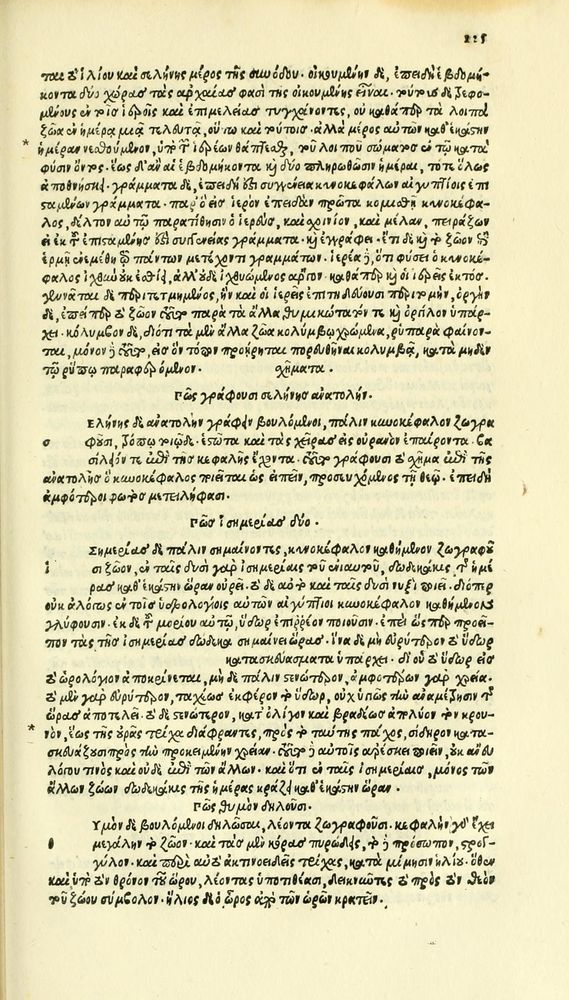 ται τοῦ ἡλίου καὶ σελήνης μέρος τῆς συνόδου· οἰκουμένην δὲ, ἐπειδὴ ἑβδομή-
κοντα δύο χώρας τὰς ἀρχαίας φασὶ τῆς οἰκουμένης εἶναι. τούτους δὲ τρεφο-
μένους ἐν τοῖς ἱεροῖς καὶ ἐπιμελείας τυγχάνοντας, οὐ καθάπερ τὰ λοιπὰ
ζῶα ἐν ἡμέρα μιᾷ τελευτᾷ, οὕτω καὶ τούτοις· ἀλλὰ μέρος αὐτῶν καθ' ἑκάστην
* ἡμέραν νεκρούμενον, ὑπὸ τῶν ἱερέων θάπτεσθαι, τοῦ λοιποῦ σώματος ἐν τῷ κατὰ
φύσιν ὄντος· ἕως δ' ἂν αἱ ἑβδομήκοντα καὶ δύο πληρωθῶσιν ἡμέραι, τότε ὅλως
ἀποθνήσκει· γράμματα δὲ, ἐπειδὴ ἐστι συγγένεια κυνοκεφάλων αἰγυπτίοις ἐπι
σταμένων γράμματα· παρ' ὃ εἰς ἱερὸν ἐπειδὰν πρῶτα κομισθῇ κυνοκέφα-
λος, δέλτον αὐτῷ παρατίθησιν ὁ ἱερεὺς, καὶ σχοινίον, καὶ μέλαν, πειράζων
εἰ ἐκ τῆς ἐπισταμένης ἐστὶ συγγενείας γράμματα· καὶ εἰ γράφει· ἔτι δὲ καὶ τὸ ζῶον τῷ
ἑρμῇ ἐνεμήθη τῷ πάντων μετέχοντι γραμμάτων. ἱερέα δὲ, ὅτι φύσει ὁ κυνοκέ-
φαλος ἰχθὺν οὐκ ἐσθίει, ἀλλ' οὐδὲ ἰχθυώμενον ἄρτον· καθάπερ καὶ οἱ ἱερεῖς ἐκτός.
γεννᾶται δὲ περιτετμημένος, ἣν καὶ οἱ ἱερεῖς ἐπιτηδεύουσι περιτομήν, ὀργὴν
δὲ, ἐπείπερ τὸ ζῶον τοῦτο παρὰ τὰ ἄλλα θυμικώτατόν τε καὶ ὀργίλον ὑπάρ-
χει· κόλυμβον δὲ, διότι τὰ μὲν ἄλλα ζῶα κολυμβῶ χρώμενα, ῥυπαρὰ φαίνον-
ται, μόνον δὲ τοῦτο, εἰς ὃν τόπον προῄρηται πορευθῆναι κολυμβᾷ, κατὰ μηδὲν
τῷ ῥύπῳ παραφερόμενον. σχήματα.
Πῶς γράφουσι σελήνης ἀνατολήν.
Ελήνης δὲ ἀνατολὴν γράφειν βουλόμενοι, πάλιν κυνοκέφαλον ζωγρα
σ φοῦσι, τρόπῳ τοιῷδε· ἑστῶτα καὶ τὰς χεῖρας εἰς οὐρανὸν ἐπαίροντα· βα
σίλειόν τε ἐπὶ τῆς κεφαλῆς ἔχοντα· τοῦτο γράφουσι τὸ σχῆμα ἐπὶ τῆς
ἀνατολῆς ὃ κυνοκέφαλος ποιεῖται ὡς εἰπεῖν, προσευχόμενος τῇ θεῷ· ἐπειδὴ
ἀμφότεροι φωτὸς μετειλήφασι.
Πῶς ἰσημερίας δύο.
Σημερίας δὲ πάλιν σημαίνοντες, κυνοκέφαλον καθήμενον ζωγραφοῦ
ι σι ζῶον, ἐν ταῖς δυσὶ γὰρ ἰσημερίαις τοῦ ἐνιαυτοῦ, δωδεκάκις τῆς ἡμέ
ρας καθ' ἑκάστην ὥραν οὐρεῖ· τὸ δὲ αὐτὸ καὶ ταῖς δυσὶ νυξὶ ποιεῖ· διόπερ
οὐκ ἀλόγως ἐν τοῖς ὑδρολογίοις αὐτῶν αἰγύπτιοι κυνοκέφαλον καθήμενον
γλύφουσιν· ἐκ δὲ τοῦ μορίου αὐτοῦ, ὕδωρ ἐπιρρέον ποιοῦσιν· ἐπεὶ ὥσπερ προεῖ-
πον τὰς τῆς ἰσημερίας δώδεκα σημαίνει ὥρας· ἵνα δὲ μὴ εὐρύτερον τὸ ὕδωρ
κατασκευάσματα ὑπάρχει· δι' οὗ τὸ ὕδωρ εἰς
τὸ ὡρολόγιον ἀποκρίνεται, μὴ δὲ πάλιν στενώτερον, ἀμφοτέρων γὰρ χρεία·
τὸ μὲν γὰρ εὐρύτερον, ταχέως ἐκφέρον τὸ ὕδωρ, οὐχ ὑγιῶς τὴν ἀναμέτρησιν τῆς
ὥρας ἀποτελεῖ· τὸ δὲ στενώτερον, κατ' ὀλίγον καὶ βραδέως ἀπλύον τὸν κρου-
* νόν, ἕως τῆς οὐρᾶς τρίχα διάφραντες, πρὸς τὸ ταύτης πάχος, σίδηρον κατα-
σκευάζουσι πρὸς τὴν προκειμένην χρείαν· τοῦτο δὲ αὐτοῖς ἀρέσκει ποιεῖν, οὐκ ἄνευ
λόγου τινὸς καὶ οὐδὲ ἐπὶ τῶν ἄλλων· καὶ ὅτι ἐν ταῖς ἰσημερίαις, μόνος τῶν
ἄλλων ζώων δωδεκάκις τῆς ἡμέρας κράζει καθ' ἑκάστην ὥραν.
Πῶς θυμὸν δηλοῦσι.
Υμὸν δὲ βουλόμενοι δηλῶσαι, λέοντα ζωγραφοῦσι· κεφαλὴν γὰρ ἔχει
θ μεγάλην τὸ ζῶον· καὶ τὰς μὲν κόρας πυρώδεις, τὸ δὲ πρόσωπον, στρογ-
γύλον· καὶ περὶ αὐτὸ ἀκτινοειδεῖς τρίχας, κατὰ μίμησιν ἡλίου· ὅθεν
καὶ ὑπὸ τὸν θρόνον τοῦ ὥρου, λέοντας ὑποτιθέασι, δεικνύοντες τὸ πρὸς τὸν θεὸν
τοῦ ζώου σύμβολον· ἥλιος δὲ ὁ ὧρος ἀπὸ τοῦ τῶν ὡρῶν κρατεῖν.